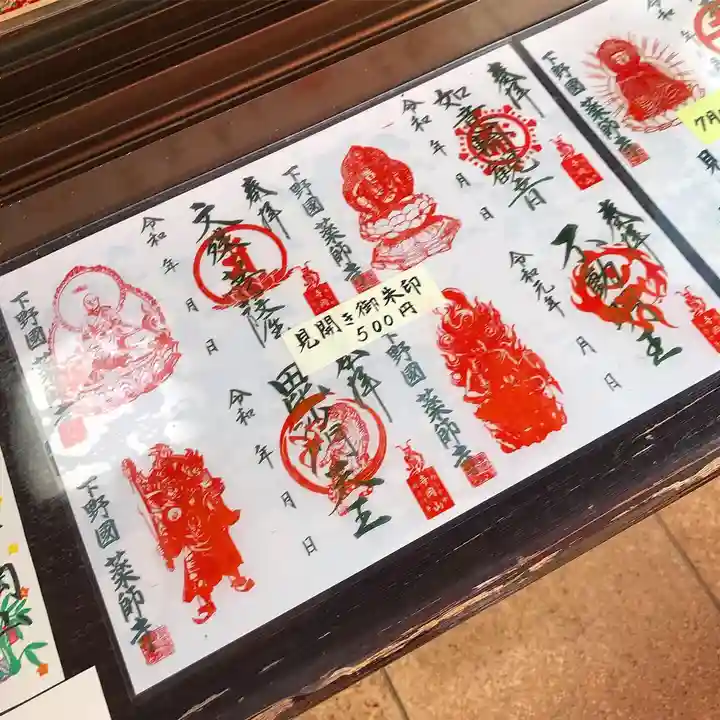 奉拝
如意輪観音
令和 年 月 日
下野國 薬師寺
奉拝
文殊菩薩
令和 年 月 日
下野國 薬師寺
見開き御朱印
500円
奉拝
不動明王
令和元年 月 日
下野國 薬師寺
奉拝
毘沙門天王
令和 年 月 日
下野國 薬師寺
下野國 薬師寺
7月